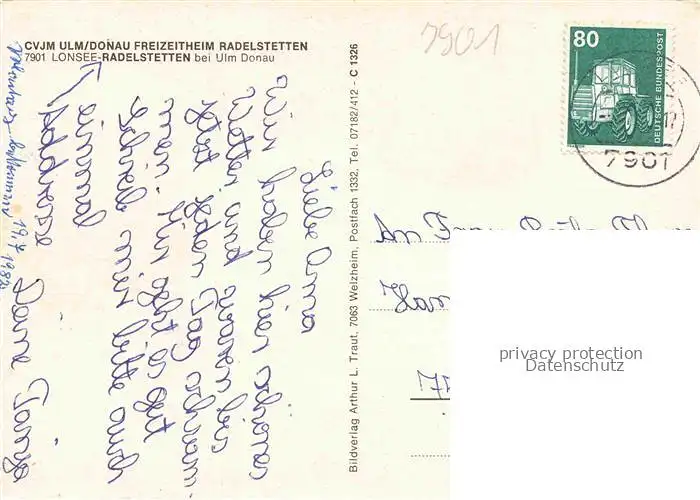 CVJM ULM/DONAU FREIZEITHEIM RADELSTETTEN
7901 LONSEE-RADELSTETTEN bei Ulm Donau
Liebe Oma
Wir haben hier schönes
Wetter und waren bis
jetzt jeden Tag schwim
men. Hir geht es gut
Schreib mir bitte auch
einmal
Addresse
Deine Tanja
19.7.1982
Bildverlag Arthur L. Traut, 7063 Welzheim, Postfach 1332, Tel. 07182/412 - C 1326
7901
80
DEUTSCHE BUNDESPOST
7901
An Frau
privacy protection
Datenschutz